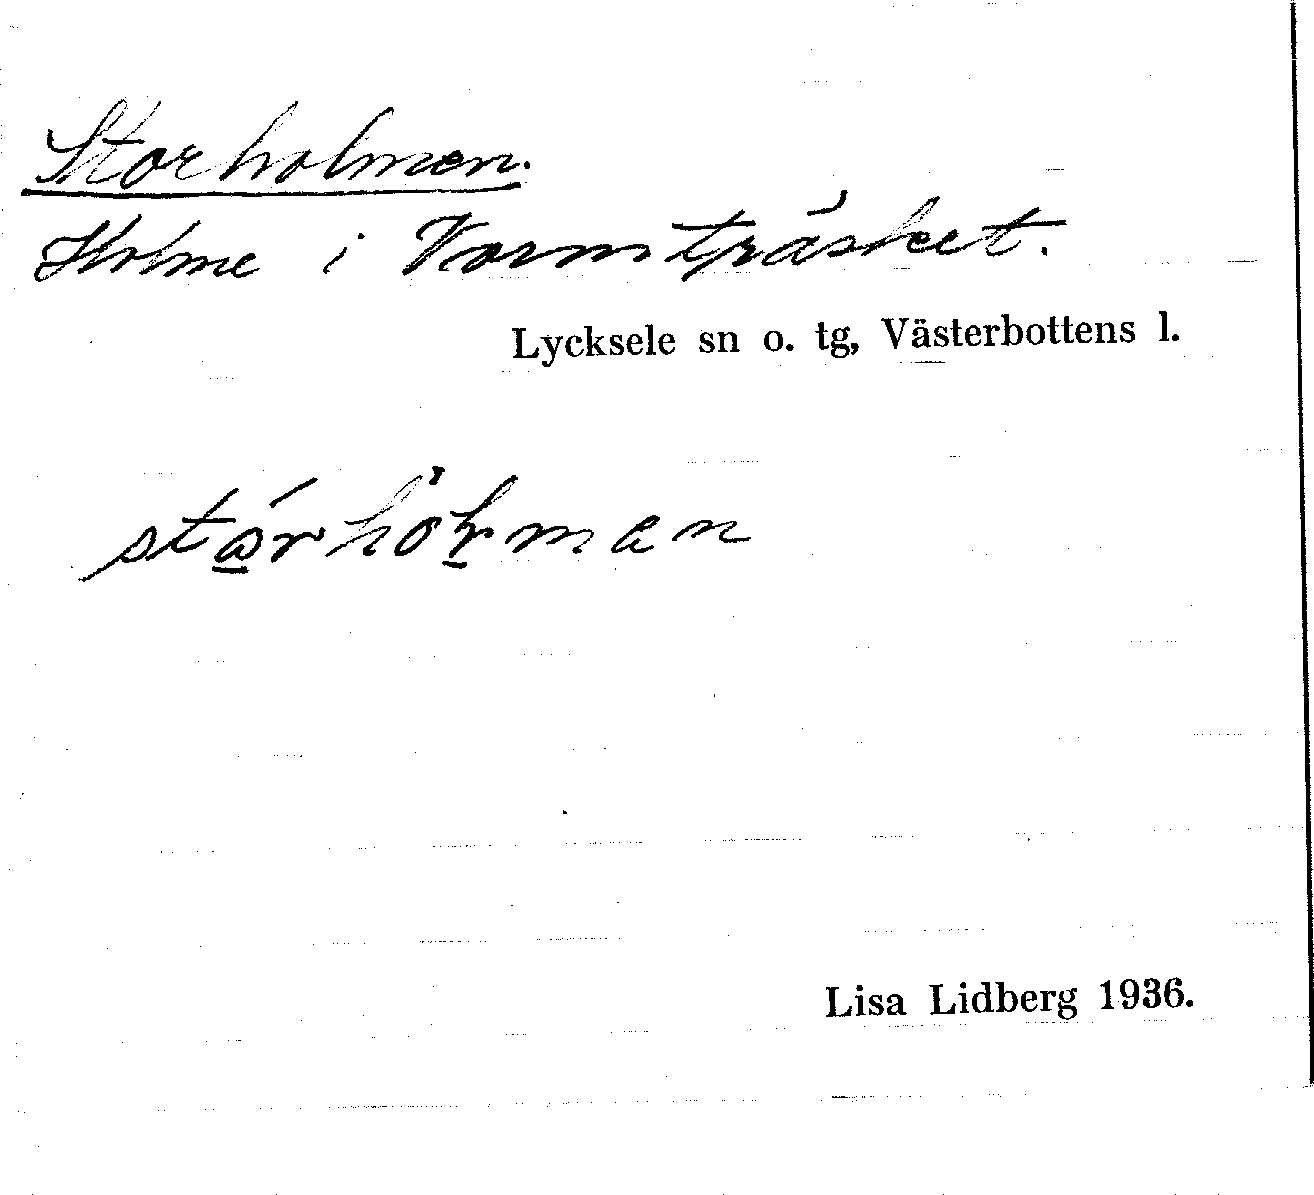 Storholmen.
Holme i Vormträsket.
Lycksele sn o. tg, Västerbottens l.
Lisa Lidberg 1936.